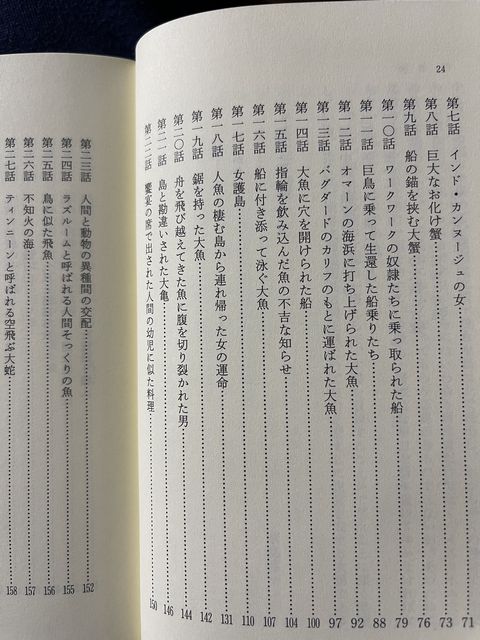 24
第七話 インド・カンヌージュの女 71
第八話 巨大なお化け蟹 73
第九話 船の錨を挟む大蟹 76
第一〇話 ワークワークの奴隷たちに乗っ取られた船 79
第一一話 巨鳥に乗って生還した船乗りたち 88
第一二話 オマーンの海浜に打ち上げられた大魚 92
第一三話 バグダードのカリフのもとに運ばれた大魚 97
第一四話 大魚に穴を開けられた船 100
第一五話 指輪を飲み込んだ魚の不吉な知らせ 104
第一六話 船に付き添って泳ぐ大魚 107
第一七話 女護島 110
第一八話 人魚の棲む島から連れ帰った女の運命 131
第一九話 鋸を持った大魚 142
第二〇話 舟を飛び越えてきた魚に腹を切り裂かれた男 144
第二一話 島と勘違いされた大亀 146
第二二話 饗宴の席で出された人間の幼児に似た料理 150
第二三話 人間と動物の異種間の交配 152
第二四話 ラズルームと呼ばれる人間そっくりの魚 155
第二五話 鳥に似た飛魚 156
第二六話 不知火の海 157
第二七話 ティンニーンと呼ばれる空飛ぶ大蛇 158